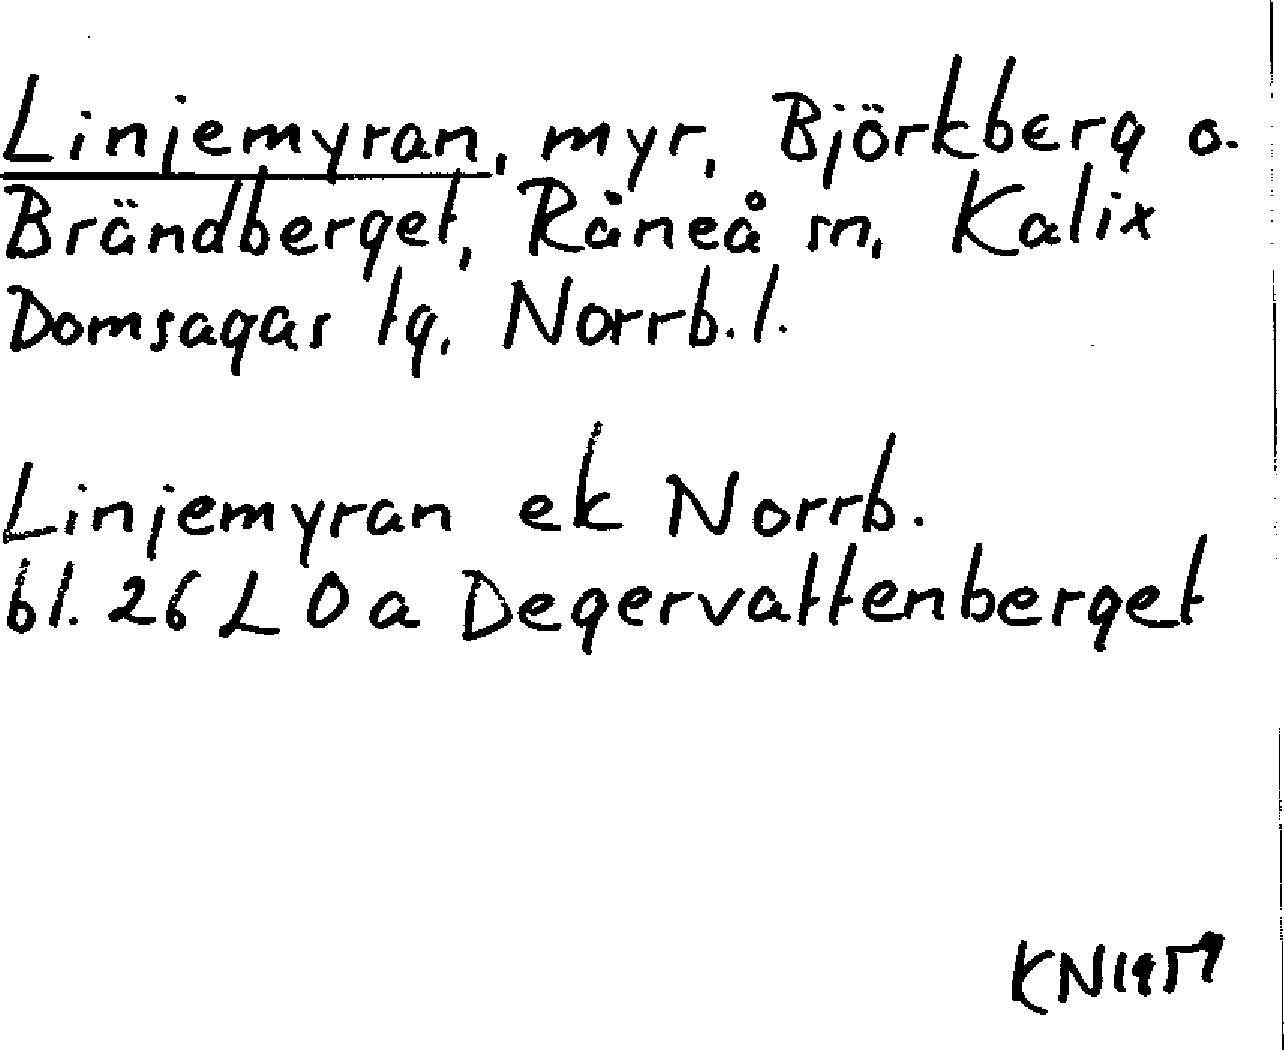 Linjemyran, myr, Björkberg o.
Brändberget, Råneå sn, Kalix
Domsagas tg, Norrb. l.
Linjemyran ek Norrb.
bl. 26 L 0 a Degervattenberget
KN 1959